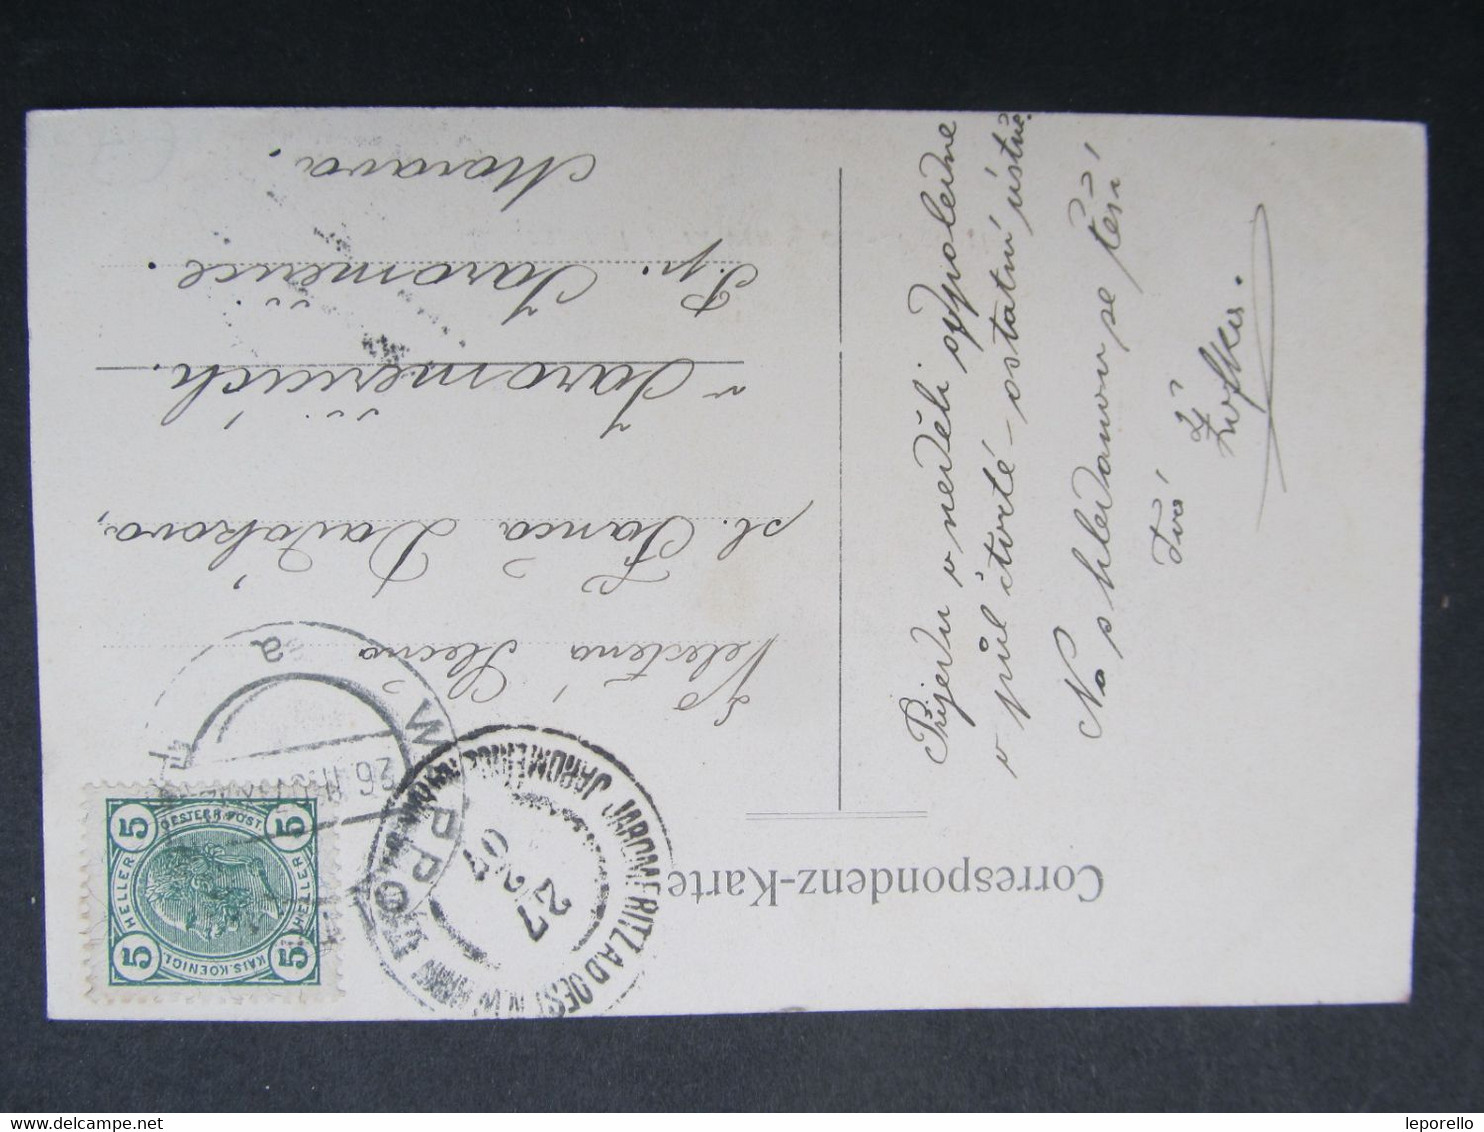 Correspondenz-Karte
Přijedu v neděli odpoledne
v půl čtvrté – ostatní ústně.
Na shledanou se těší
Tvá
Žofka.
Velectěná Slečna
sl. Fanča Dvořákova,
v Jaroměřicích.
P.p. Jaroměřice.
Morava.
5 OESTERR. POST 5
HELLER HELLER
5 KAIS. KOENIGL. 5
27
2 07
JAROMERITZ A.D. OEST. N.W. BAHN
26 II
leporello